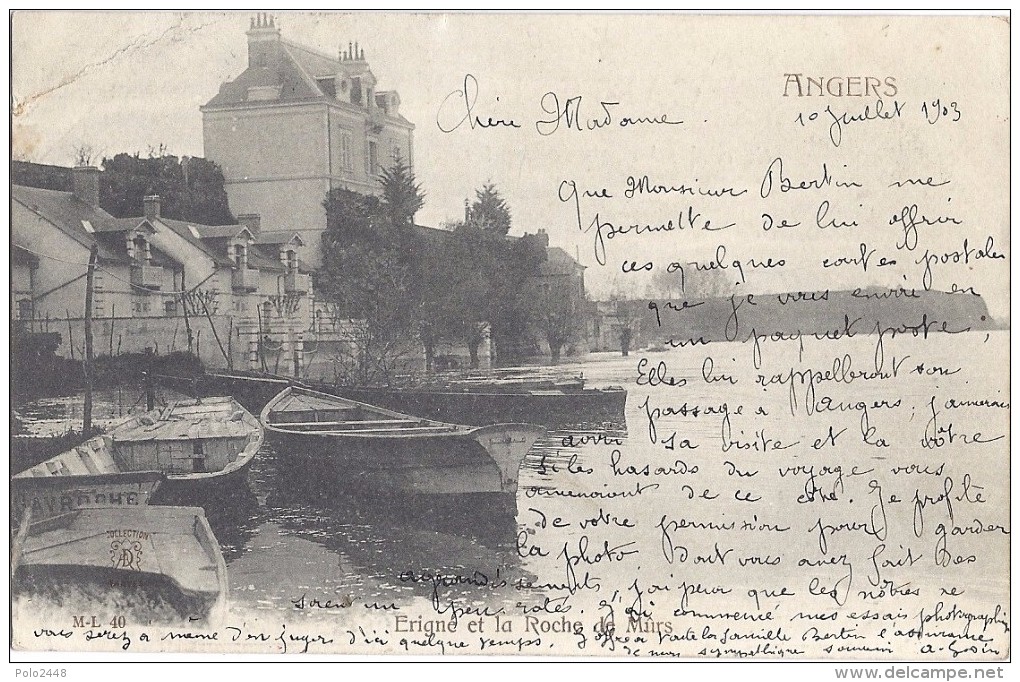 ANGERS
10 Juillet 1903
Chère Madame.
Que Monsieur Bertin me
permette de lui offrir
ces quelques cartes postales
que je vous envoie en
un paquet poste;
Elles lui rappelleront son
passage à Angers; j'aimerais
avoir sa visite et la vôtre
si les hasards du voyage vous
amenaient de ce côté. Je profite
de votre permission pour garder
la photo. Dont vous avez fait des
agrandissements, j'ai peur que les nôtres ne
soient un peu ratés. J'ai commencé mes essais photographiques
vous serez à même d'en juger d'ici quelque temps. J'offre à toute la famille Bertin l'assurance
de mon sympathique souvenir
COLLECTION
M-L 40
Erigné et la Roche de Mûrs
Polo2448
delcampe.net